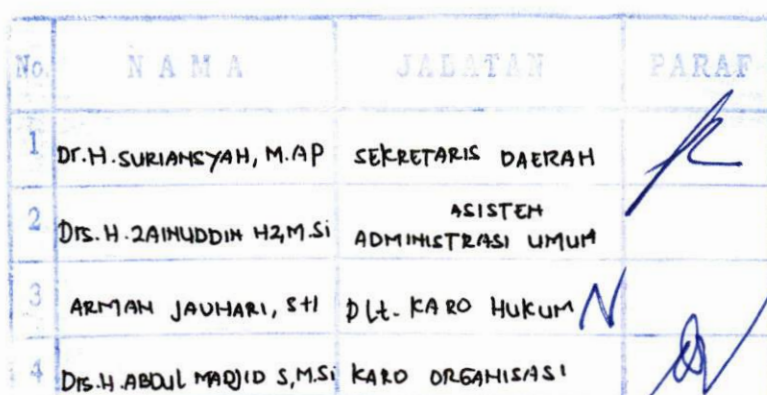 No. NAMA JABATAN PARAF
1 Dr.H.SURIANSYAH, M.AP SEKRETARIS DAERAH
2 Drs.H.ZAINUDDIN HZ,M.Si ASISTEN
ADMINISTRASI UMUM
3 ARMAN JAUHARI, SHI Plt. KARO HUKUM
4 Drs.H.ABDUL MADJID S,M.Si KARO ORGANISASI